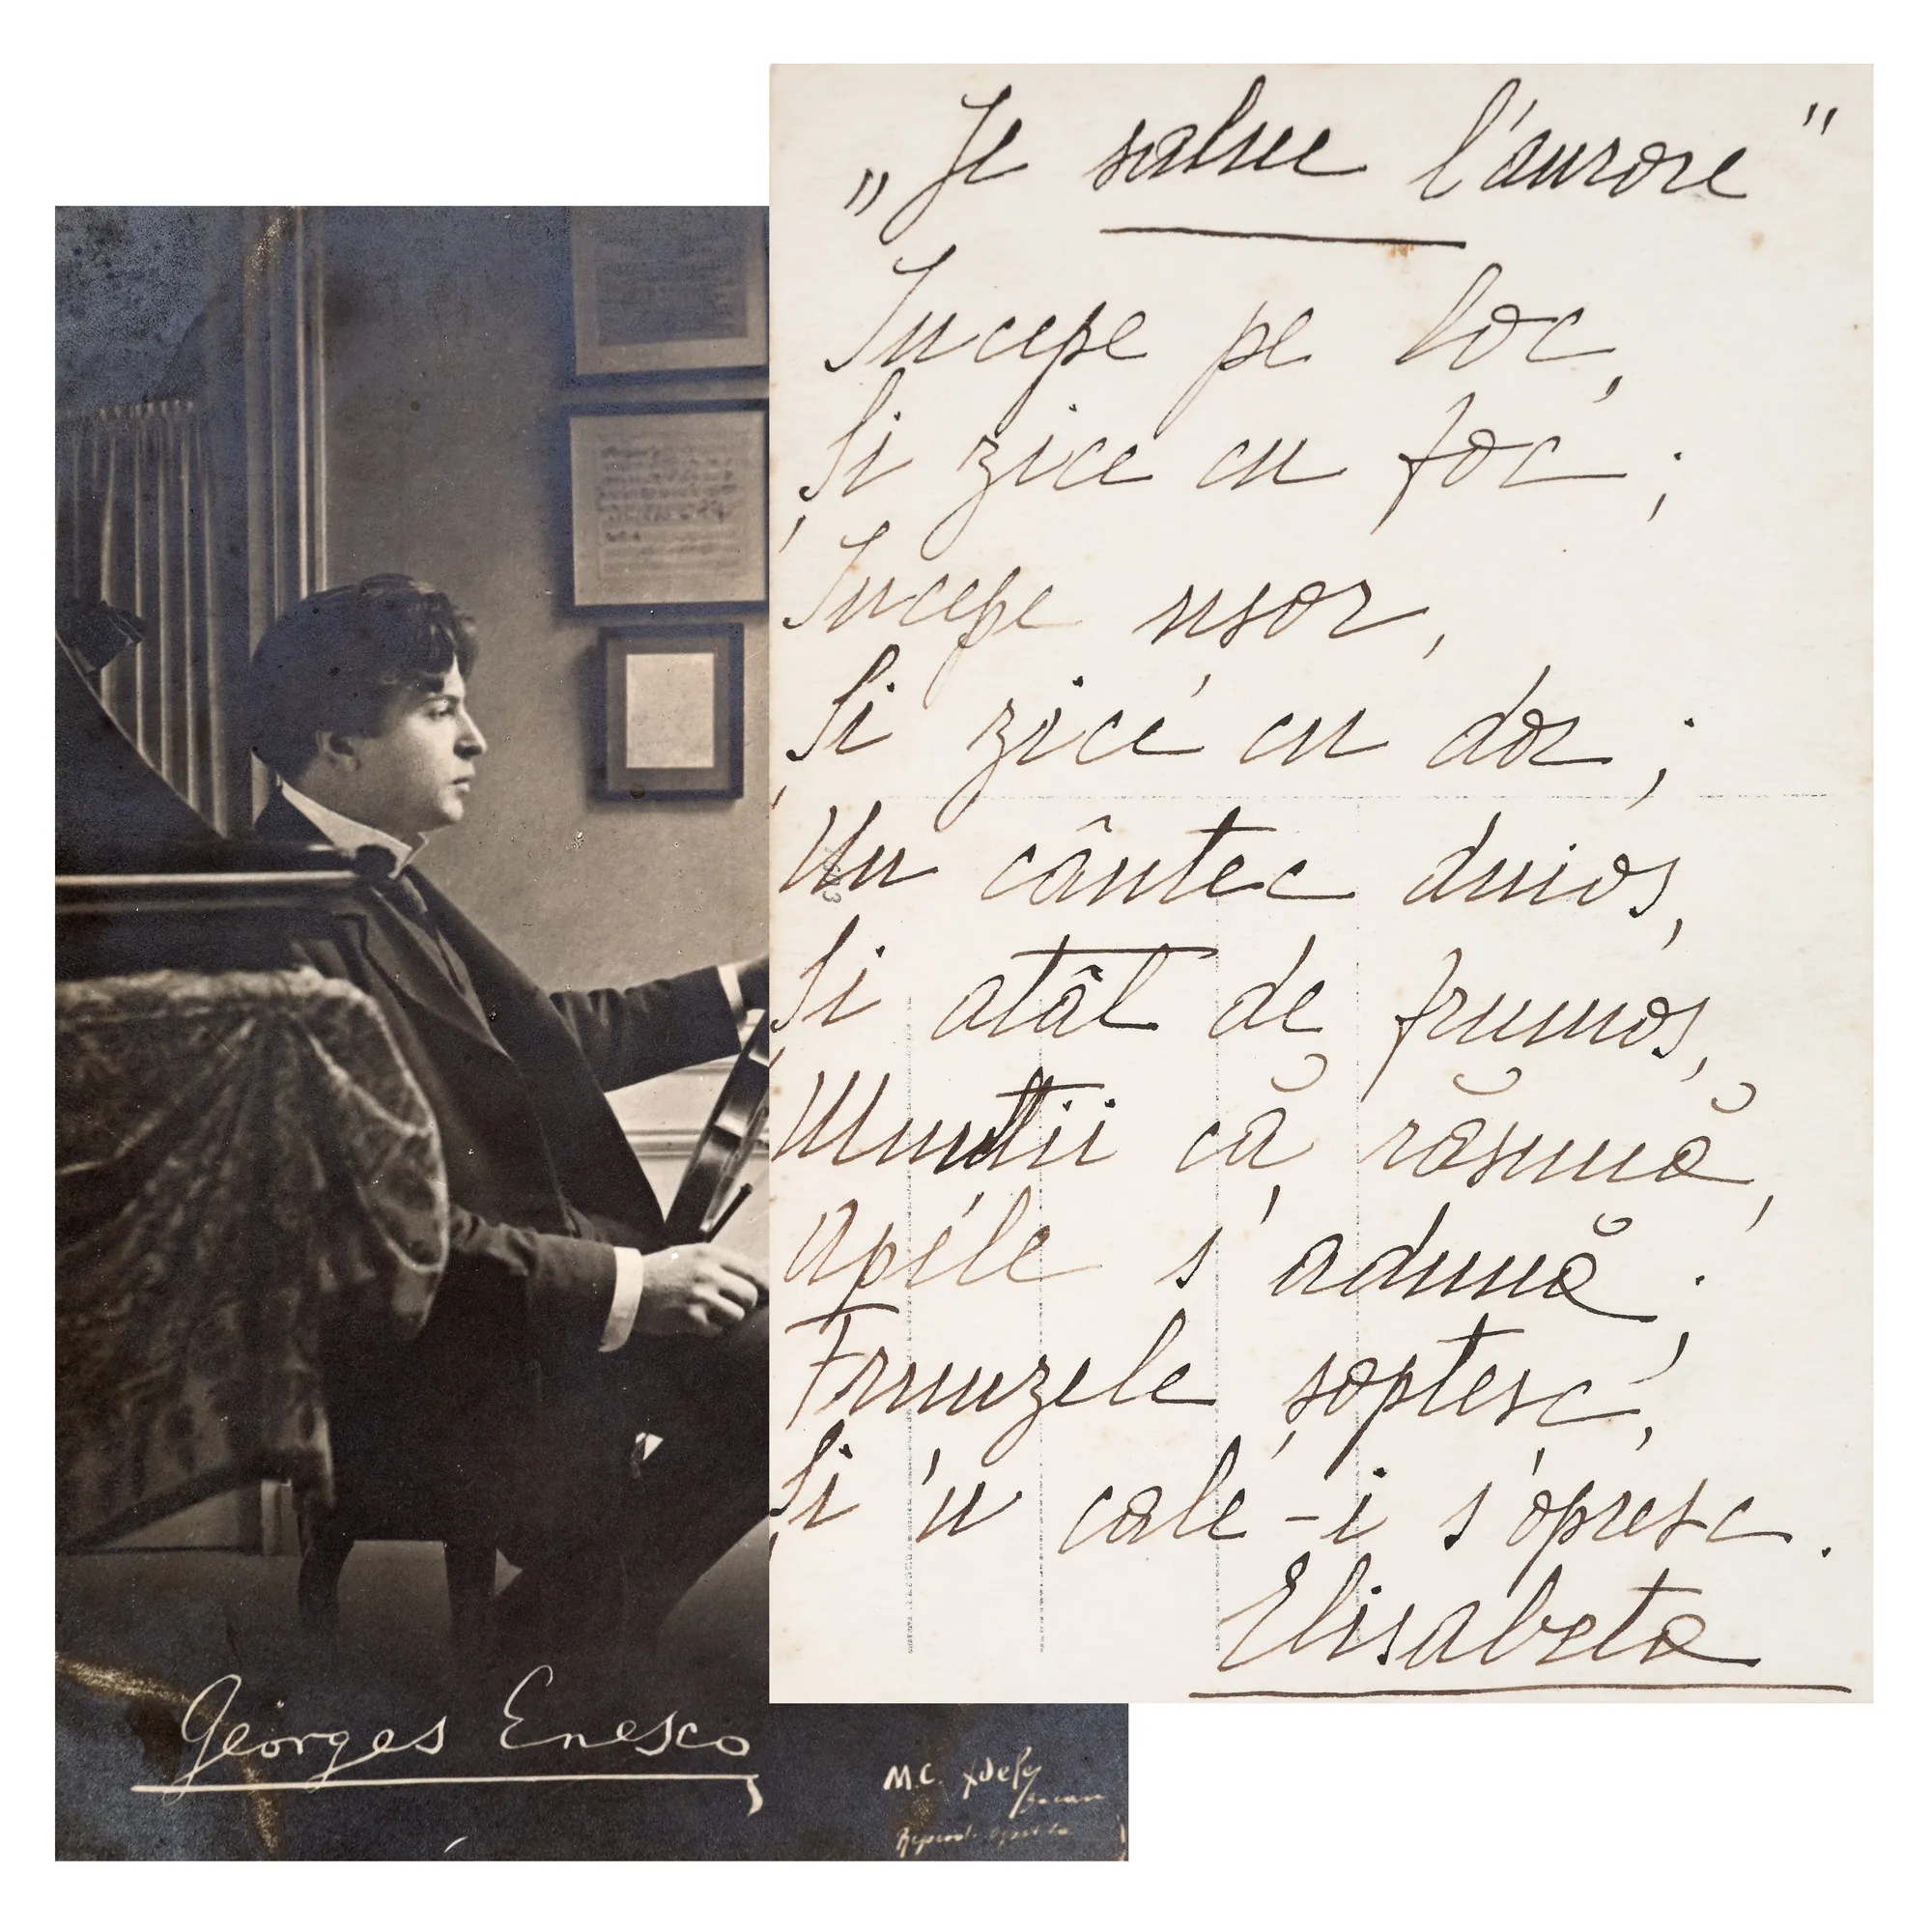 „Je salue l'aurore"
Incepe pe loc,
Și zice cu foc;
Incepe usor,
Și zice cu dor;
Un cântec duios,
Și atât de frumos,
Munții că răsună,
Apele s'adună;
Frunzele șoptesc,
Și 'n cale-i s'opresc.
Elisabeta
Georges Enesco
M.C.